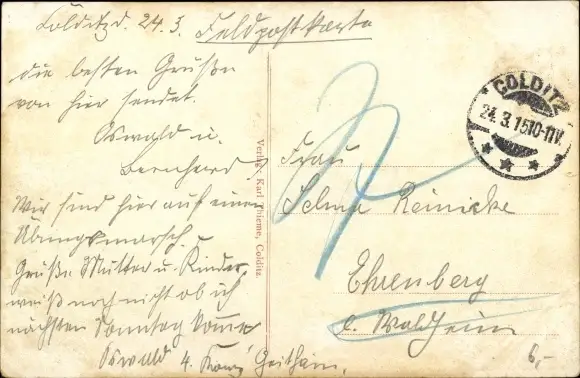 Colditz d. 24.3.
Feldpostkarte
die besten Grüße
von hier sendet
Oswald u.
Bernhard
Wir sind hier auf einen
Übungsmarsch u
Grüße Mutter u. Kinder,
weiß noch nicht ob ich
nächsten Sonntag komme
Oswald 4. Komp Geithain.
Verlag Karl Thieme, Colditz.
COLDITZ
24.3.15.10-11V.
Frau
Selma Reinicke
Ehrenberg
b. Waldheim
6,-